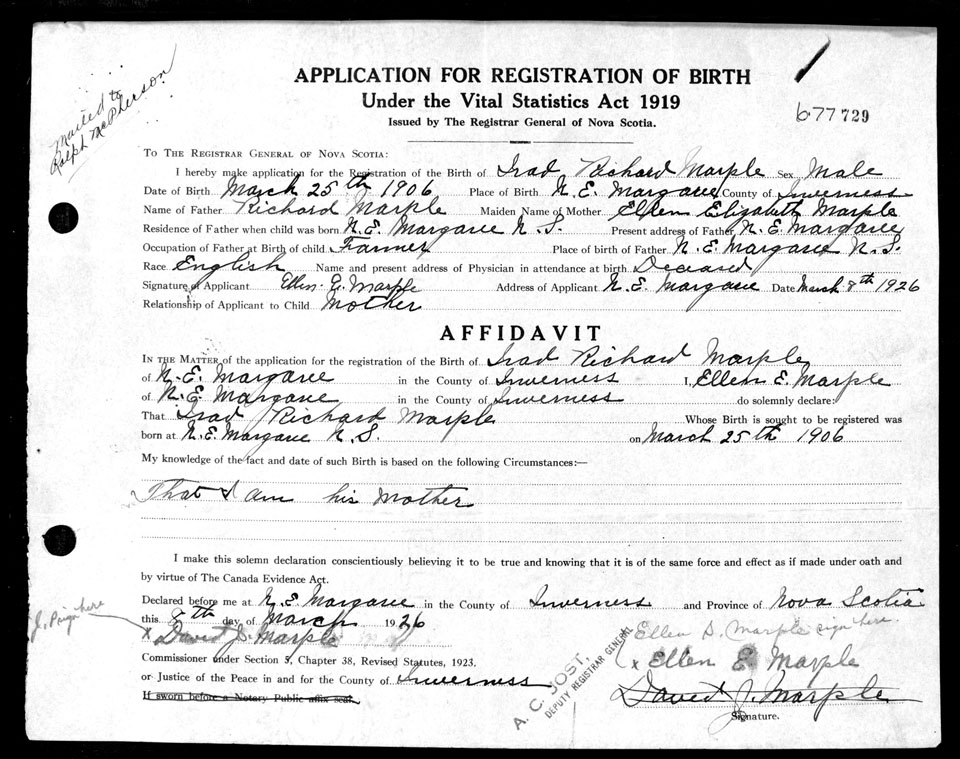 mailed to
Ralph McPherson
APPLICATION FOR REGISTRATION OF BIRTH
Under the Vital Statistics Act 1919
Issued by The Registrar General of Nova Scotia.
677729
TO THE REGISTRAR GENERAL OF NOVA SCOTIA:
I hereby make application for the Registration of the Birth of Irad Richard Marple Sex Male
Date of Birth March 25th 1906 Place of Birth N. E. Margaree County of Inverness
Name of Father Richard Marple Maiden Name of Mother Ellen Elizabeth Marple
Residence of Father when child was born N. E. Margaree N. S. Present address of Father N. E. Margaree
Occupation of Father at Birth of child Farmer Place of birth of Father N. E. Margaree N. S.
Race English Name and present address of Physician in attendance at birth Deceased
Signature of Applicant Ellen E. Marple Address of Applicant N. E. Margaree Date March 8th 1926
Relationship of Applicant to Child Mother
AFFIDAVIT
IN THE MATTER of the application for the registration of the Birth of Irad Richard Marple
of N. E. Margaree in the County of Inverness I, Ellen E. Marple
of N. E. Margaree in the County of Inverness do solemnly declare:
That Irad Richard Marple Whose Birth is sought to be registered was
born at N. E. Margaree N. S. on March 25th 1906
My knowledge of the fact and date of such Birth is based on the following Circumstances:—
That I am his Mother
I make this solemn declaration conscientiously believing it to be true and knowing that it is of the same force and effect as if made under oath and
by virtue of The Canada Evidence Act.
Declared before me at N. E. Margaree in the County of Inverness and Province of Nova Scotia
this 8th day of March 1926
J. P. sign here
x David J. Marple
Ellen E. Marple sign here.
Commissioner under Section 5, Chapter 38, Revised Statutes, 1923.
x Ellen E. Marple
or Justice of the Peace in and for the County of Inverness
David J. Marple
If sworn before a Notary Public affix seal.
Signature.
A. C. JOST,
DEPUTY REGISTRAR GENERAL